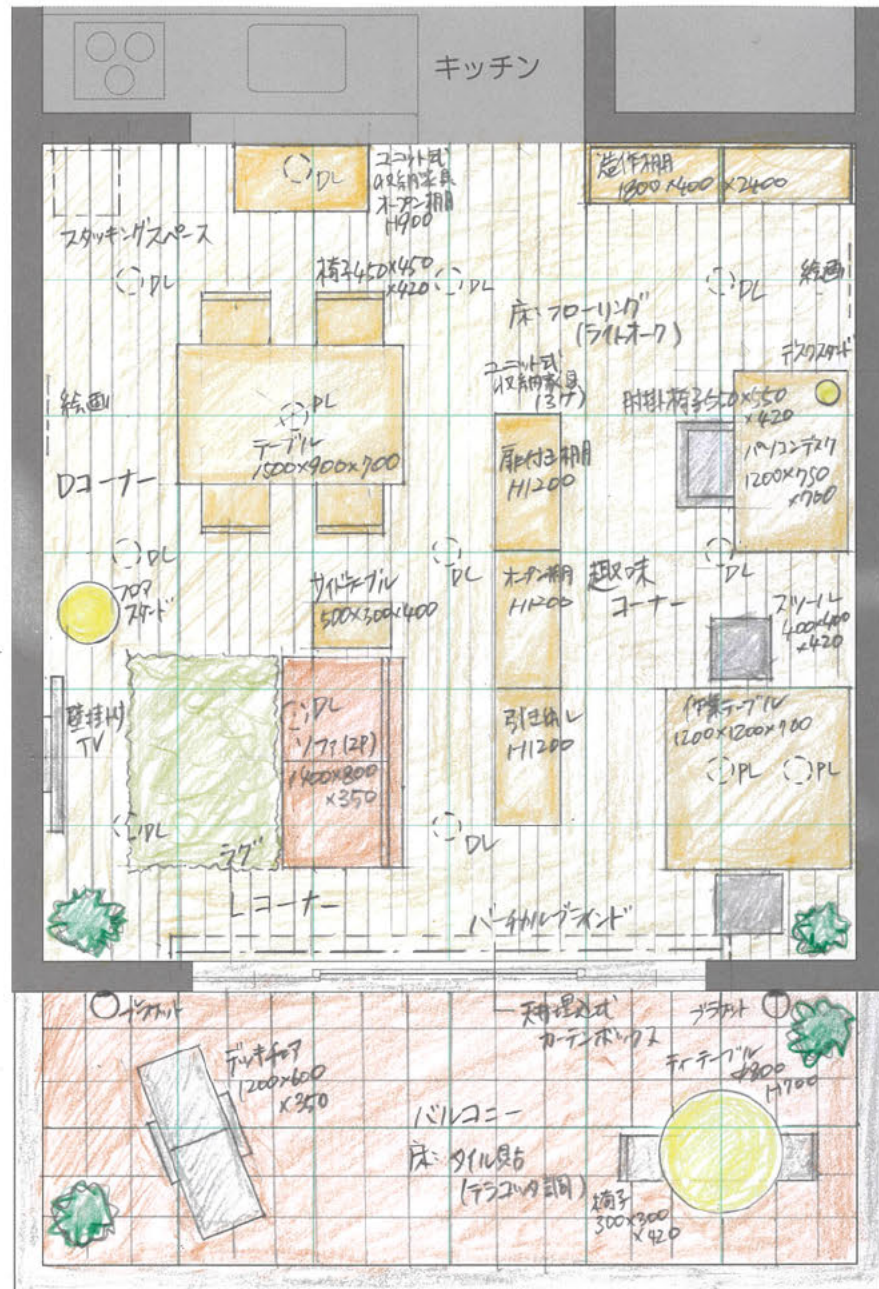 キッチン
DL
ユニット式
収納家具
オープン棚
H900
造作棚
1800×400×2400
スタッキングスペース
DL
椅子450×450
×420
DL
DL
絵画
床:フローリング
(ライトオーク)
デスクスタンド
ユニット式
収納家具
(3ケ)
肘掛椅子550×550
×420
絵画
PL
テーブル
1500×900×700
扉付き棚
H1200
パソコンデスク
1200×750
×700
Dコーナー
DL
DL
DL
フロア
スタンド
サイドテーブル
500×300×400
オープン棚
H1200
趣味
コーナー
スツール
400×400
×420
壁掛け
TV
DL
ソファ(2P)
1400×800
×350
引き出し
H1200
作業テーブル
1200×1200×700
PL
PL
DL
ラグ
DL
Lコーナー
バーチカルブラインド
ブラケット
天井埋込式
カーテンボックス
ブラケット
デッキチェア
1200×600
×350
ティーテーブル
φ800
H700
バルコニー
床:タイル貼
(テラコッタ調)
椅子
300×300
×420